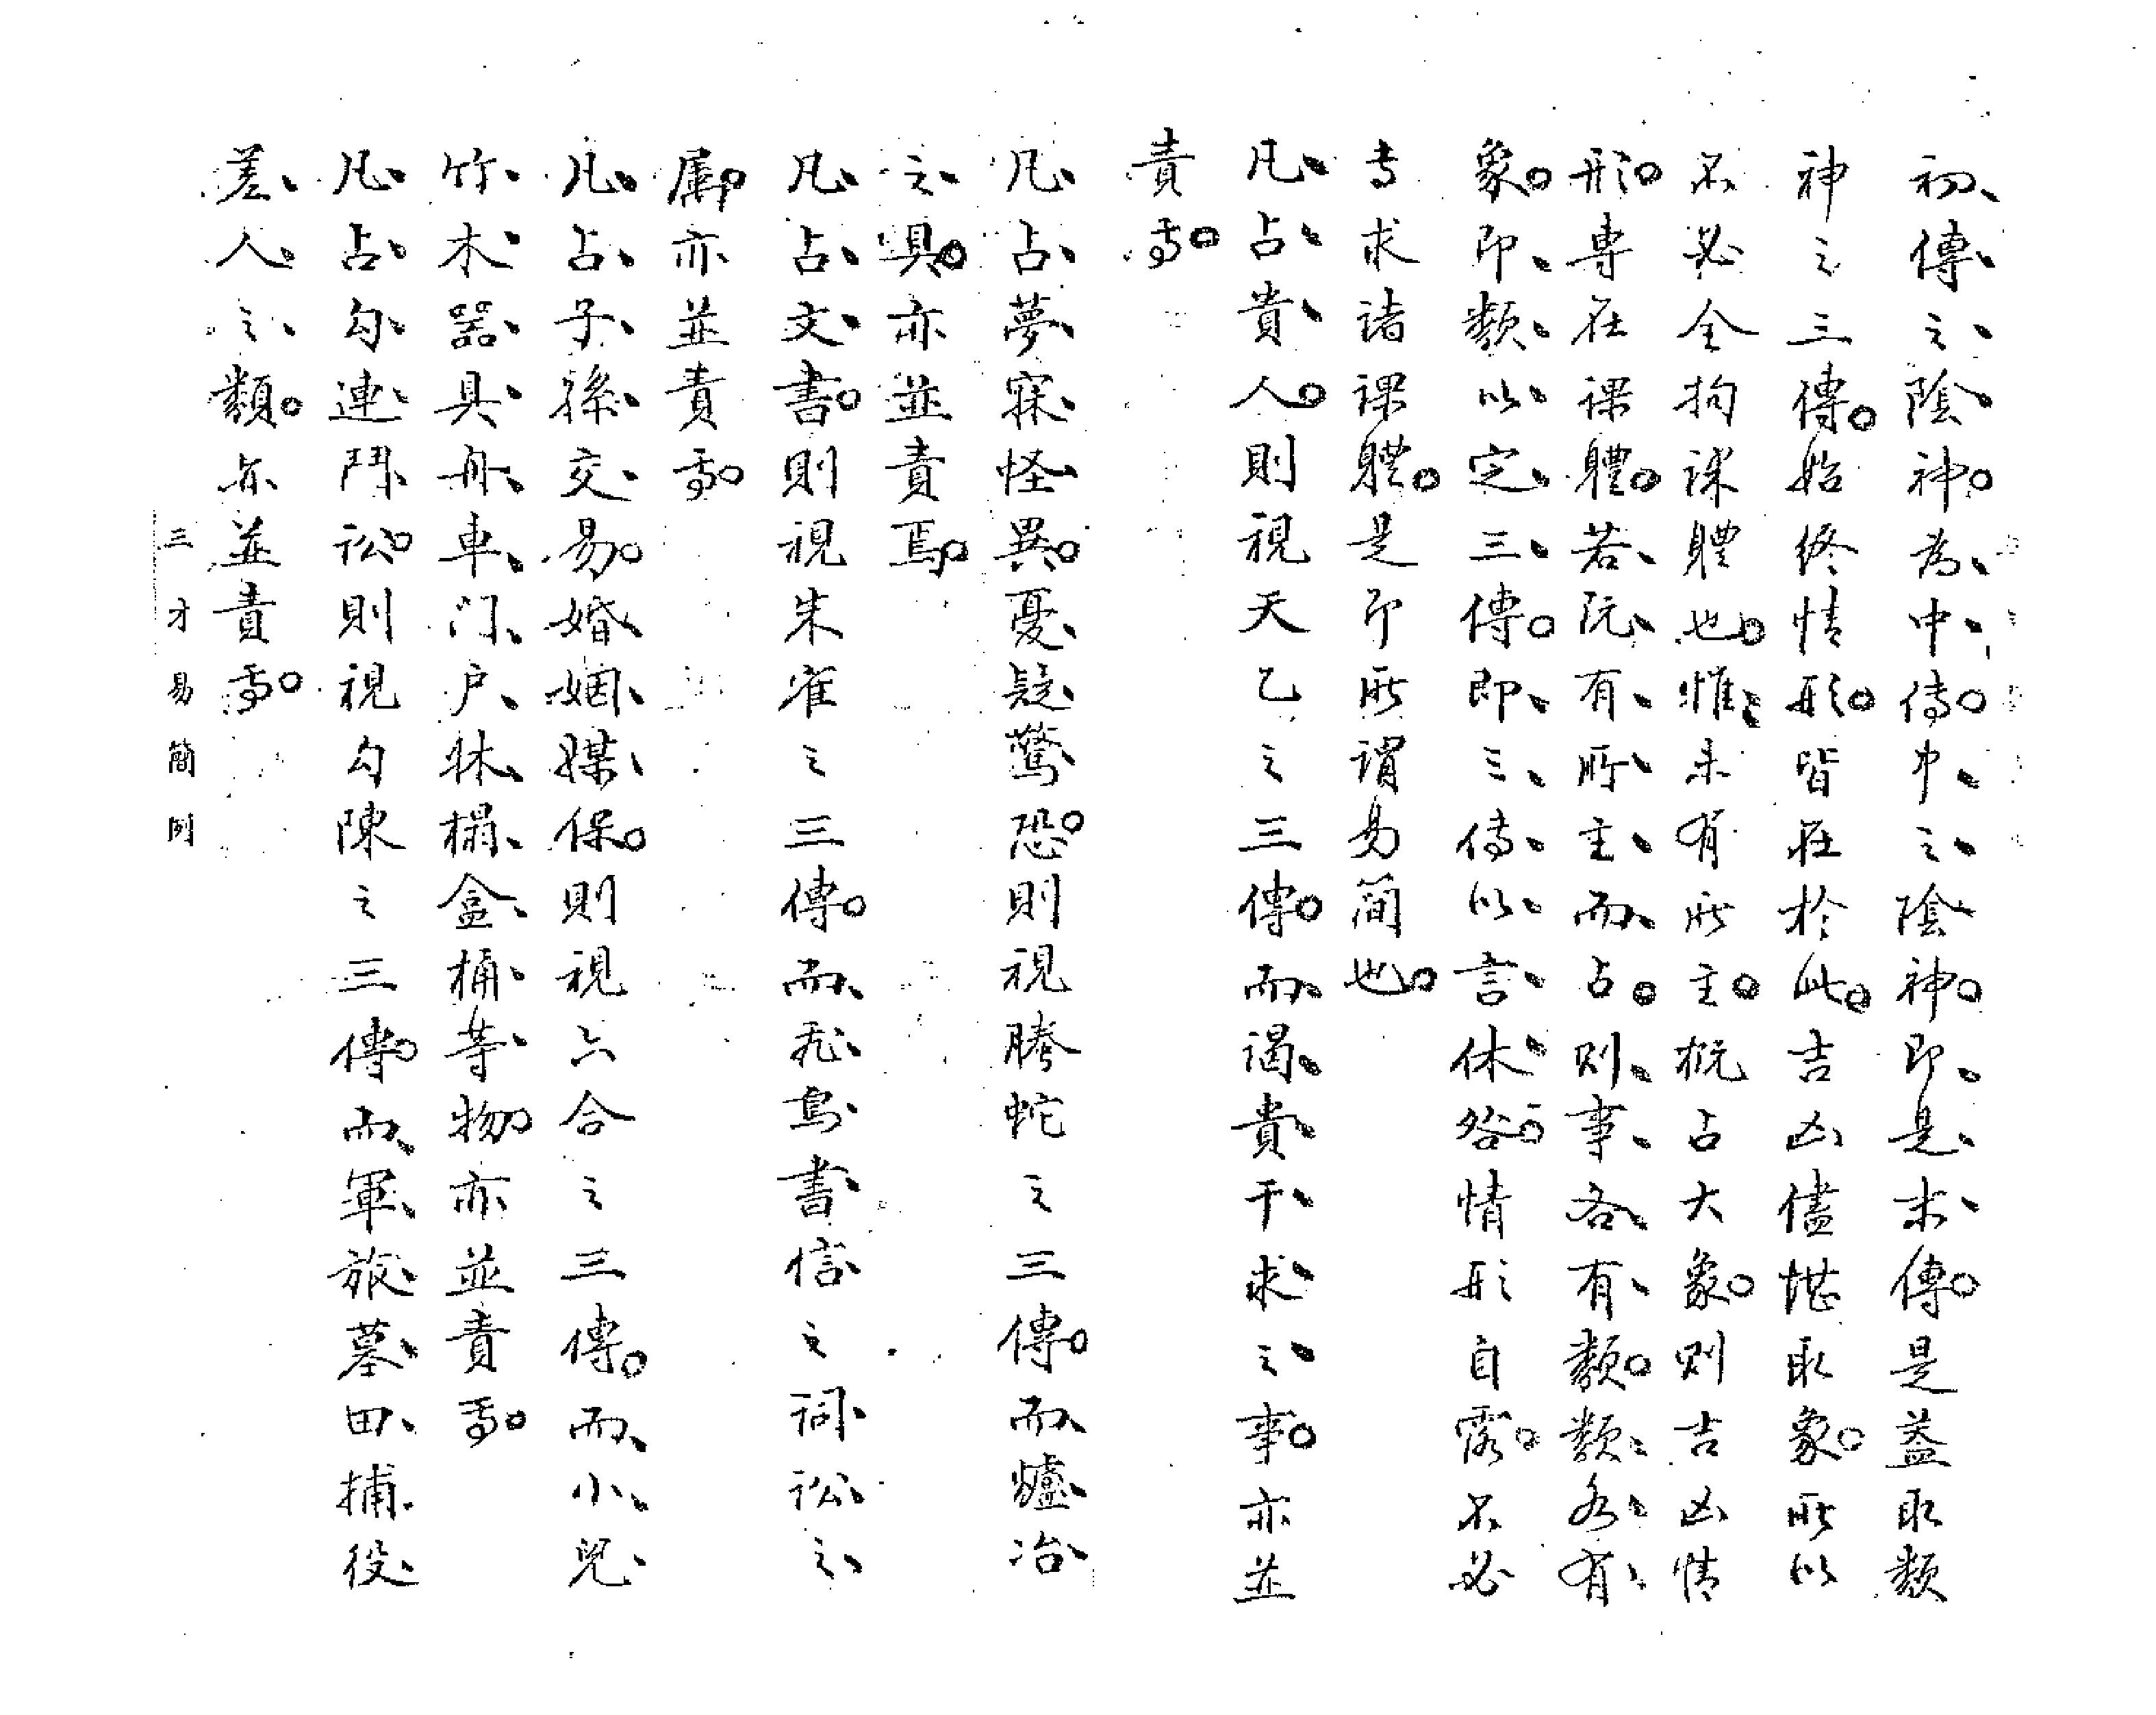 初傳之陰神為中傳中之陰神即是末傳是蓋取類
神之三傳始終情形皆在於此吉凶儘堪取象所以
不必全拘課體也惟未有所主概占大象則吉凶情
形專在課體若既有所主而占則事各有類類各有
象即類以定三傳即三傳以言休咎情形自露不必
专求諸課體是即所謂易簡也
凡占貴人則視天乙之三傳而謁貴干求之事亦並
責焉
凡占夢寐怪異憂疑驚恐則視螣蛇之三傳而爐冶
之具亦並責焉
凡占文書則視朱雀之三傳而飛鳥書信之詞訟之
屬亦並責焉
凡占子孫交易婚姻媒保則視六合之三傳而小兒
竹木器具舟車门户牀榻盒桶等物亦並責焉
凡占勾連鬥訟則視勾陳之三傳而軍旅墓田捕役
差人之類亦並責焉
三才易簡例